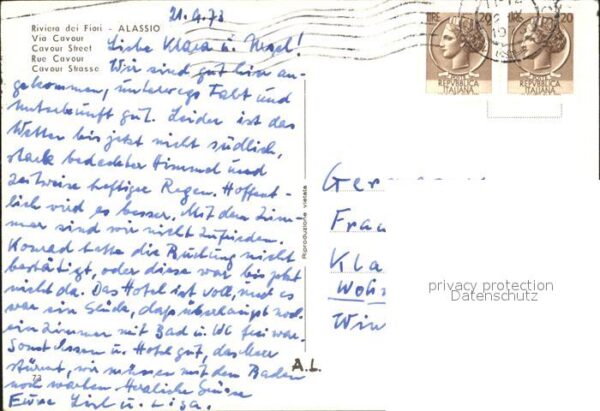 21.9.73
Riviera dei Fiori - ALASSIO
Via Cavour
Cavour Street
Rue Cavour
Cavour Strasse
Liebe Klara u.
Wir sind gut hier an-
gekommen, unterwegs Fahrt und
Unterkunft gut. Leider ist das
Wetter bis jetzt nicht südlich,
stark bedeckter Himmel und
zeitweise heftiger Regen. Hoffent-
lich wird es besser. Mit dem Zim-
mer sind wir nicht zufrieden.
Konrad hatte die Buchung nicht
bestätigt, oder diese war bis jetzt
nicht da. Das Hotel ist voll, und es
war ein Glück, daß überhaupt noch
ein Zimmer mit Bad u. WC frei war.
Sonst Essen u. Hotel gut, das Meer
stürmt, wir müssen mit dem Baden
noch warten. Herzliche Grüsse
Eure u. Lisa.
73
A.L.
Riproduzione vietata
LIRE 20
REPUBBLICA
ITALIANA
20
REPUBBLICA
ITALIANA
Ger
Frau
Kla
Woh
Win
privacy protection
Datenschutz